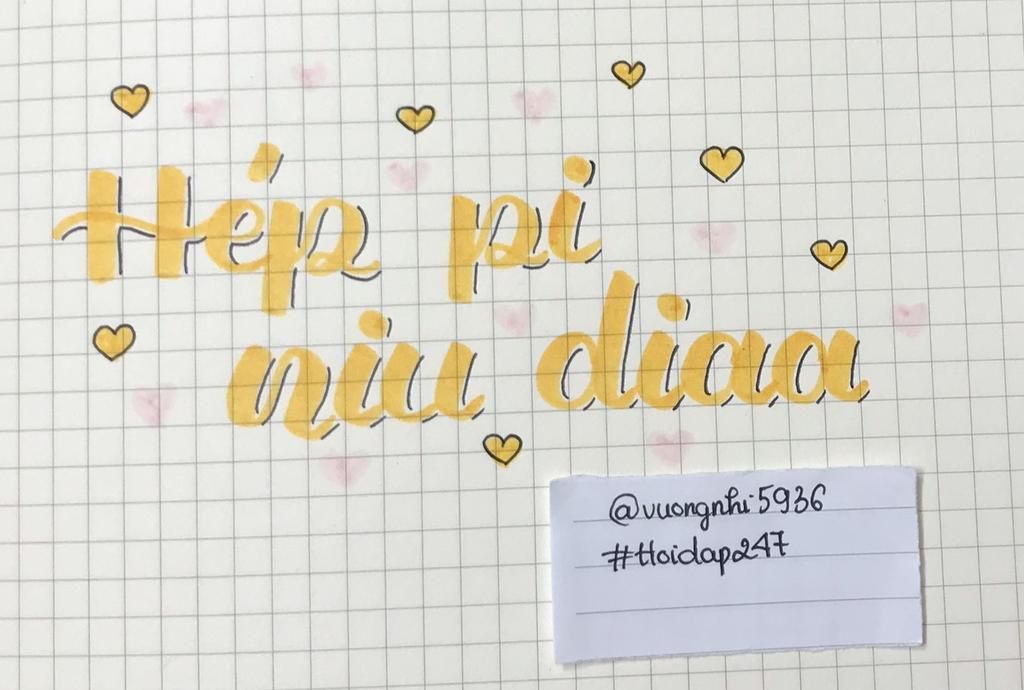 Hép pi
niu diaa
@vuongnhi5936
#Hoidap247